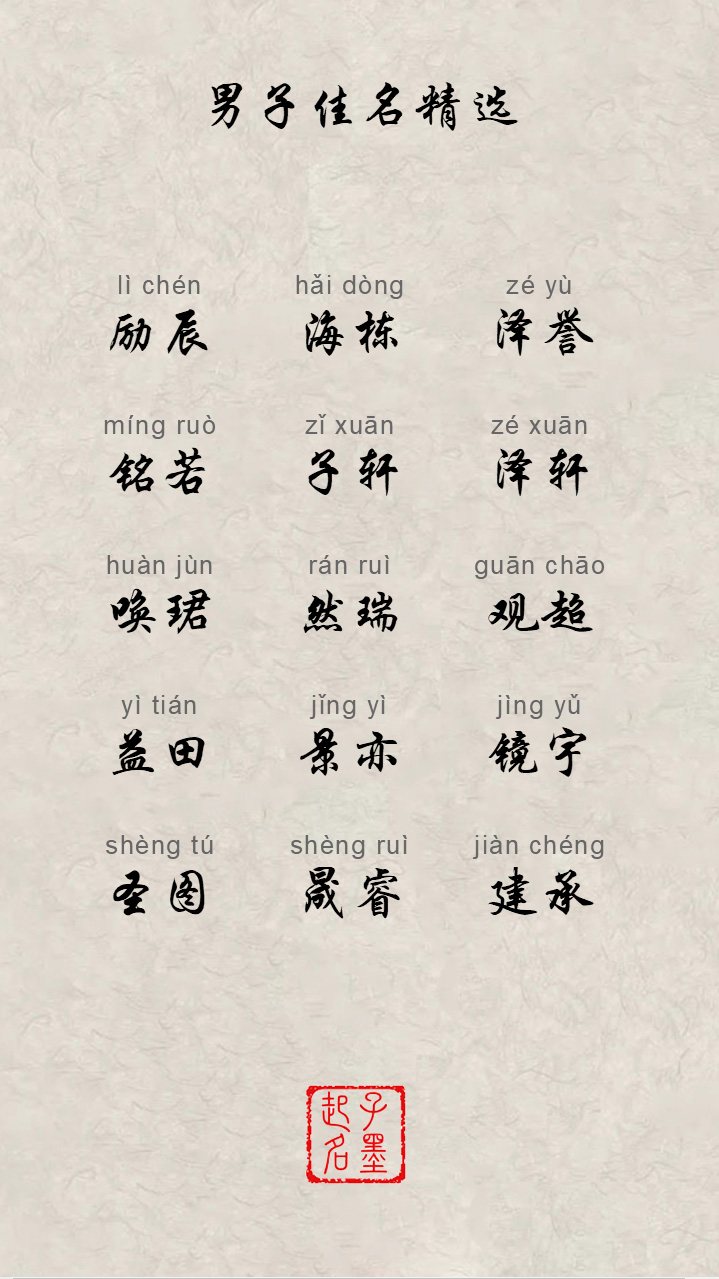 男子佳名精选
lì chén hǎi dòng zé yù
励辰 海栋 泽誉
míng ruò zǐ xuān zé xuān
铭若 子轩 泽轩
huàn jùn rán ruì guān chāo
唤珺 然瑞 观超
yì tián jǐng yì jìng yǔ
益田 景亦 镜宇
shèng tú shèng ruì jiàn chéng
圣图 晟睿 建承
子墨
起名